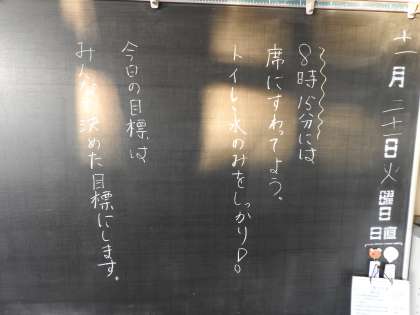 十一月二十一日火曜日
日直
8時15分には
席にすわってよう。
トイレ、水のみをしっかり
今日の目標は
みんな 決めた目標にします。